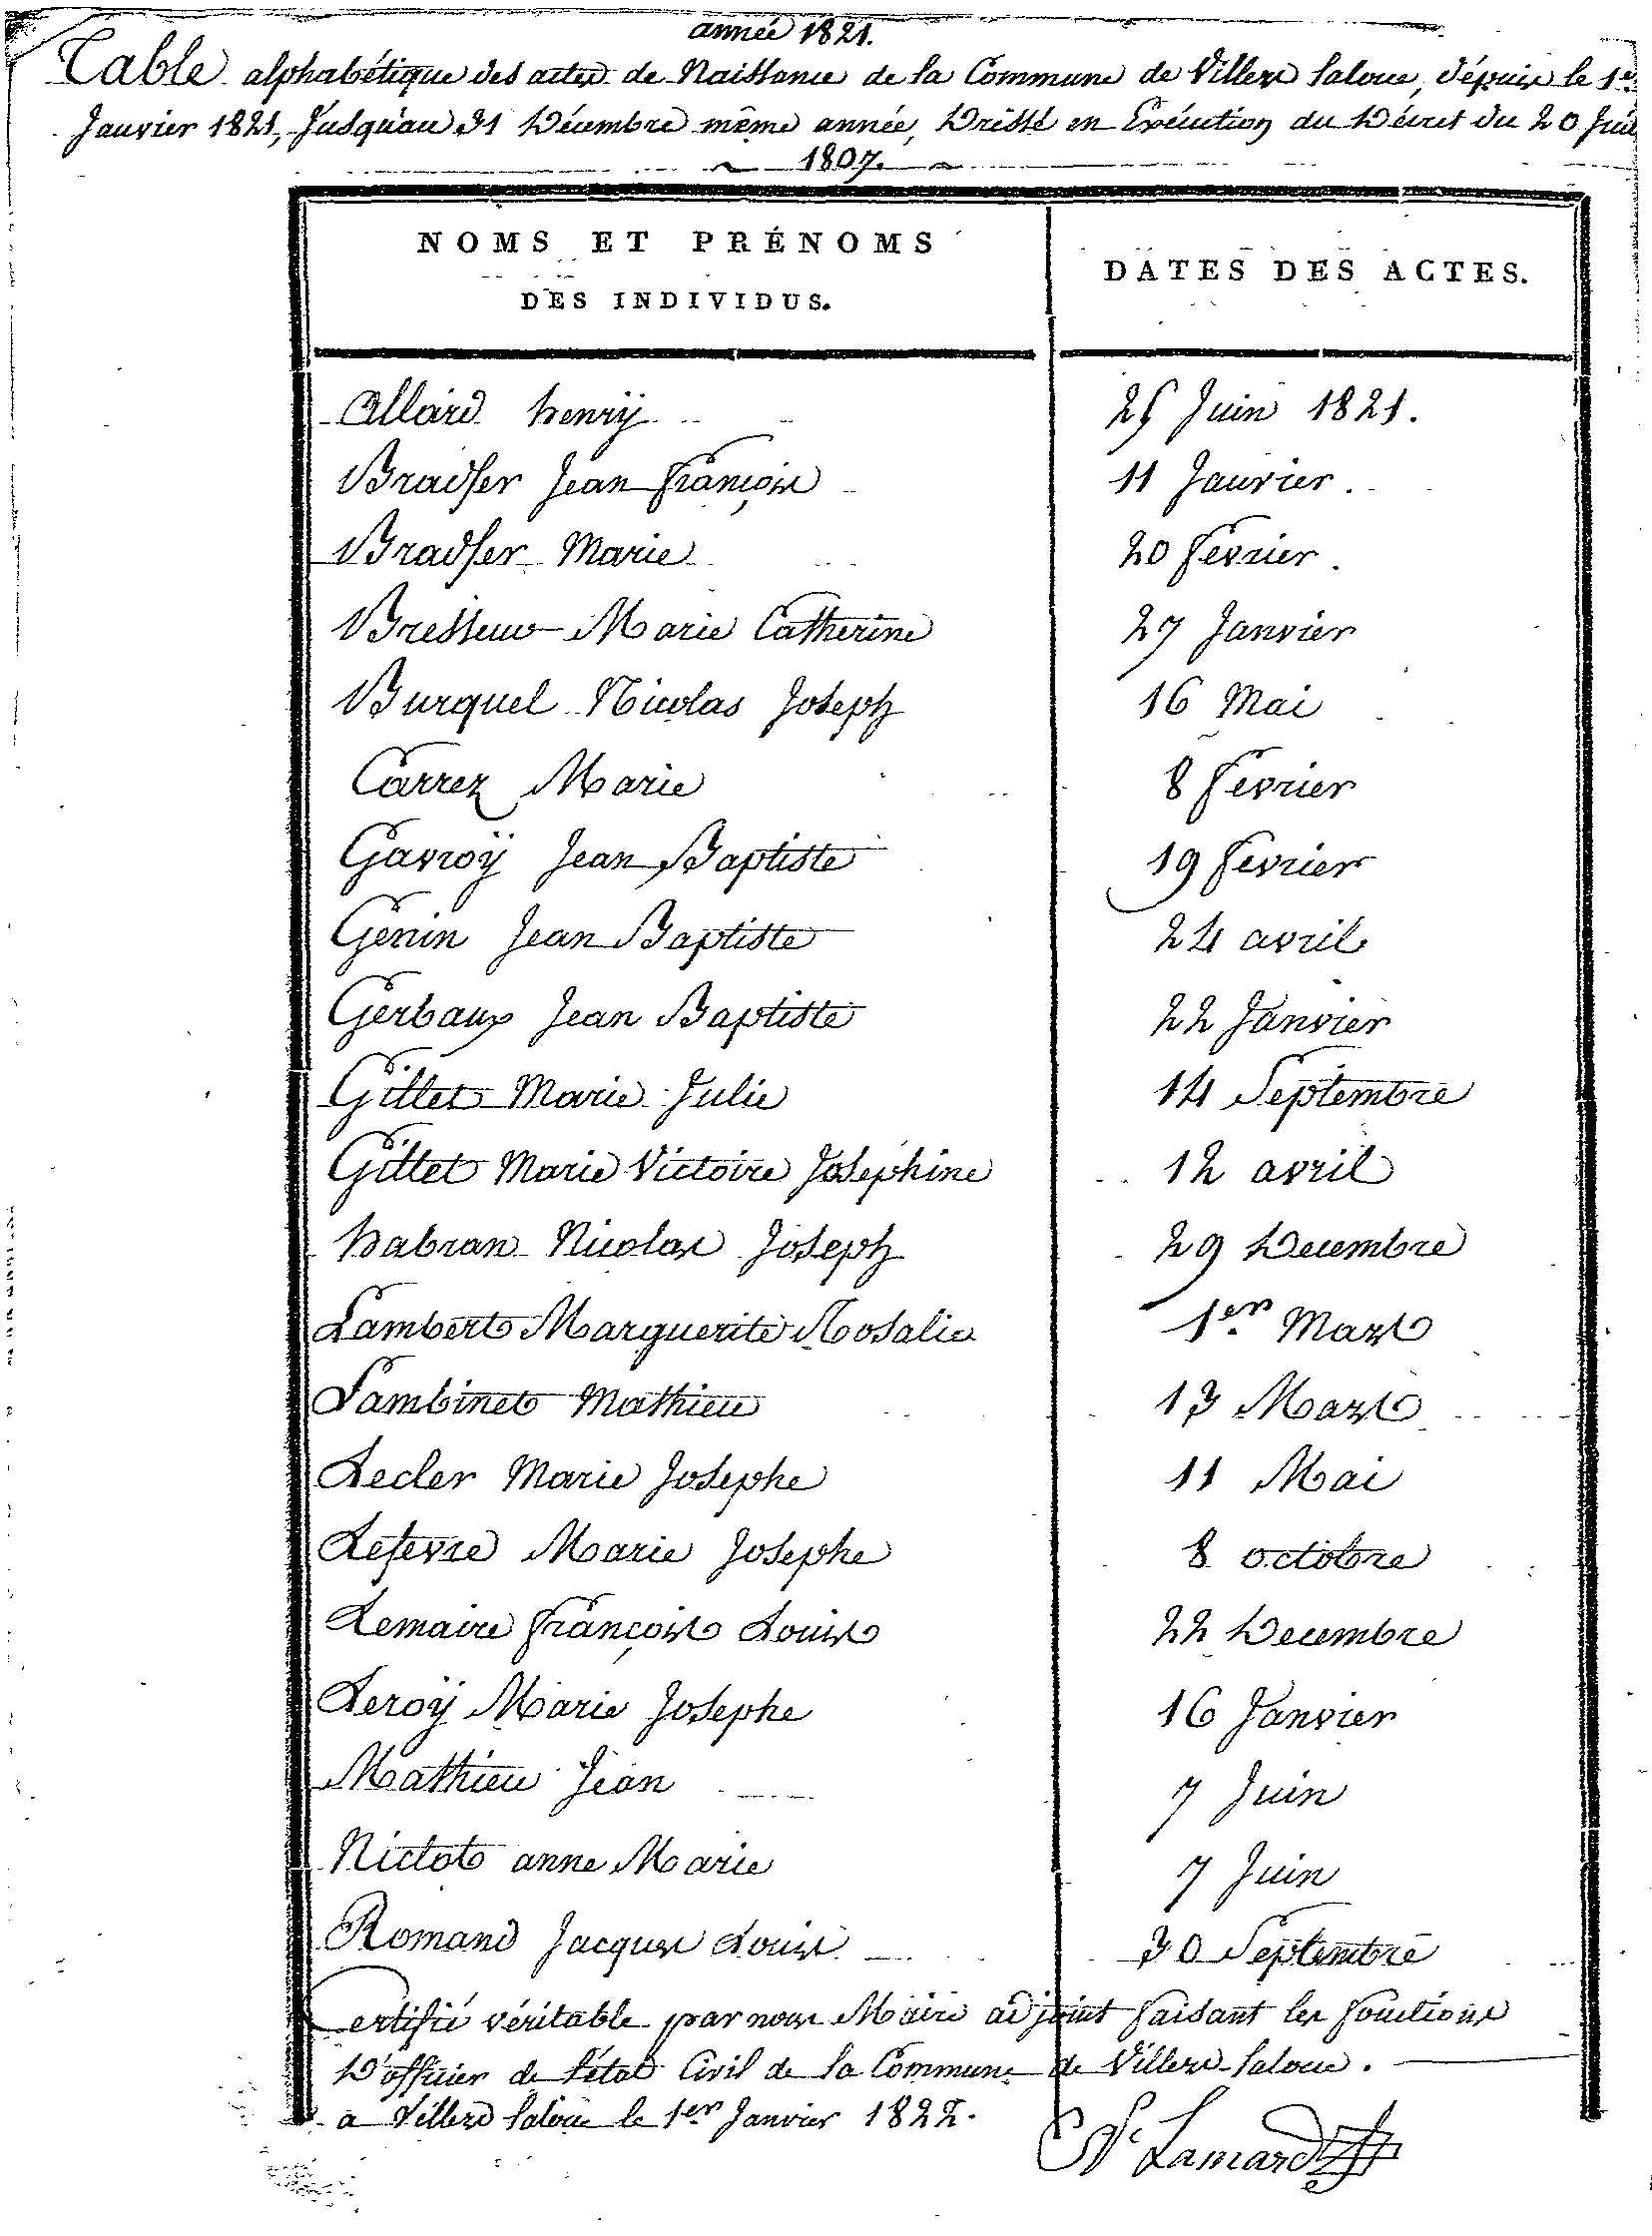 année 1821.
Table alphabétique des actes de Naissance de la Commune de Villers la loue, dépuis le 1er
Janvier 1821, Jusqu'au 31 Décembre même année, Dressé en Exécution du Décret du 20 Juil
1807.
NOMS ET PRÉNOMS DES INDIVIDUS. DATES DES ACTES.
Allard henrÿ 25 Juin 1821.
Bradfer Jean François 11 Janvier.
Bradfer Marie 20 fevrier.
Bresseur Marie Catherine 27 Janvier
Burquel Nicolas Joseph 16 Mai
Carrez Marie 8 fevrier
Gavroÿ Jean Baptiste 19 fevrier
Genin Jean Baptiste 24 avril
Gerbaux Jean Baptiste 22 Janvier
Gillet Marie Julie 14 Septembre
Gillet Marie Victoire Josephine 12 avril
habran Nicolas Joseph 29 Decembre
Lambert Marguerite Rosalie 1er Mars
Lambinet Mathieu 13 Mars
Lecler Marie Josephe 11 Mai
Lefevre Marie Josephe 8 octobre
Lemaire françois Louis 22 Decembre
Leroÿ Marie Josephe 16 Janvier
Mathieu Jean 7 Juin
Nictot anne Marie 7 Juin
Romand Jacques Louis 30 Septembre
Certifié véritable par nous Maire adjoint faisant les fonctions
D'officier de l'état Civil de la Commune de Villers la loue.
a Villers la loue le 1er Janvier 1822.
Lamard